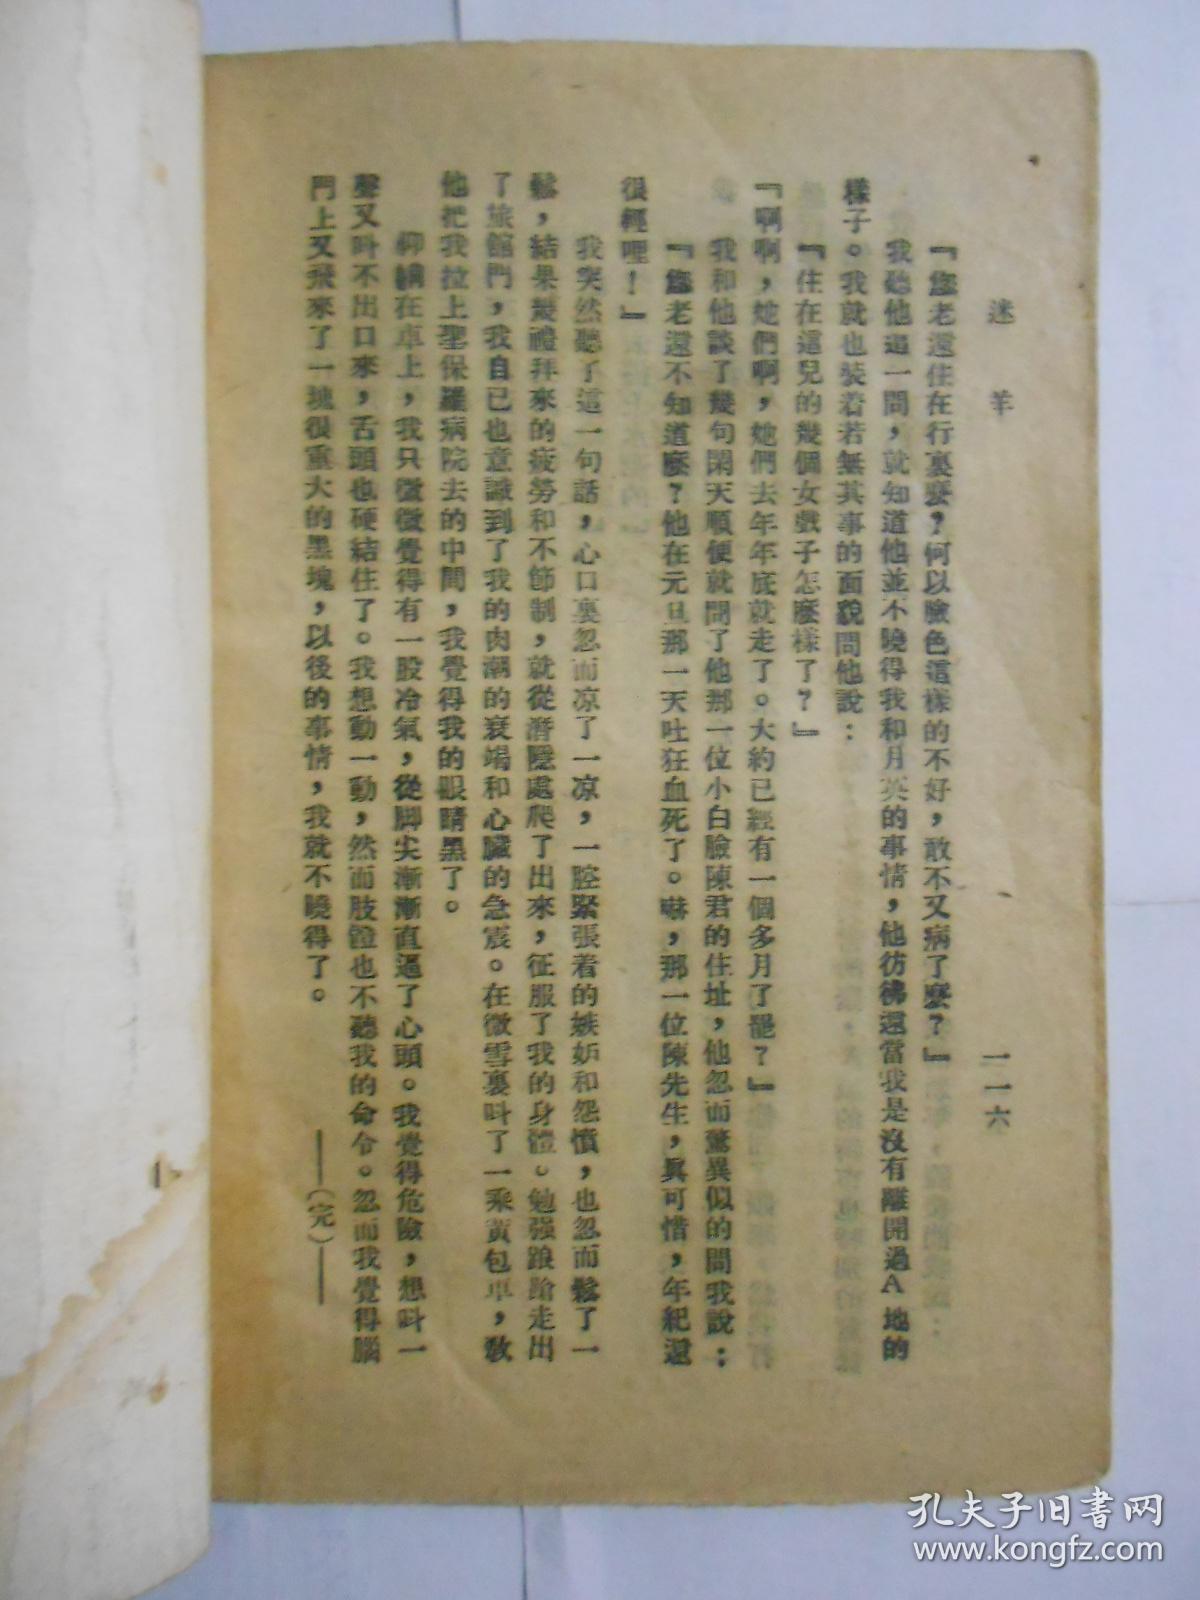 迷羊
一一六
『您老還住在行裏麼？何以臉色這樣的不好，敢不又病了麼？』
我聽他這一問，就知道他並不曉得我和月英的事情，他彷彿還當我是沒有離開過A地的
樣子。我就也裝着若無其事的面貌問他說：
『住在這兒的幾個女戲子怎麼樣了？』
『啊啊，她們啊，她們去年年底就走了。大約已經有一個多月了罷？』
我和他談了幾句閑天順便就問了他那一位小白臉陳君的住址，他忽而驚異似的問我說：
『您老還不知道麼？他在元旦那一天吐狂血死了。嚇，那一位陳先生，眞可惜，年紀還
很輕哩！』
我突然聽了這一句話，心口裏忽而凉了一凉，一腔緊張着的嫉妬和怨憤，也忽而鬆了一
鬆，結果幾禮拜來的疲勞和不節制，就從潛隱處爬了出來，征服了我的身體。勉强踉蹌走出
了旅館門，我自已也意識到了我的肉潮的衰竭和心臟的急震。在微雪裏叫了一乘黃包車，敎
他把我拉上聖保羅病院去的中間，我覺得我的眼睛黑了。
仰躺在車上，我只微微覺得有一股冷氣，從脚尖漸漸直逼了心頭。我覺得危險，想叫一
聲又叫不出口來，舌頭也硬結住了。我想動一動，然而肢體也不聽我的命令。忽而我覺得腦
門上又飛來了一塊很重大的黑塊，以後的事情，我就不曉得了。
——（完）——
孔夫子旧书网
www.kongfz.com